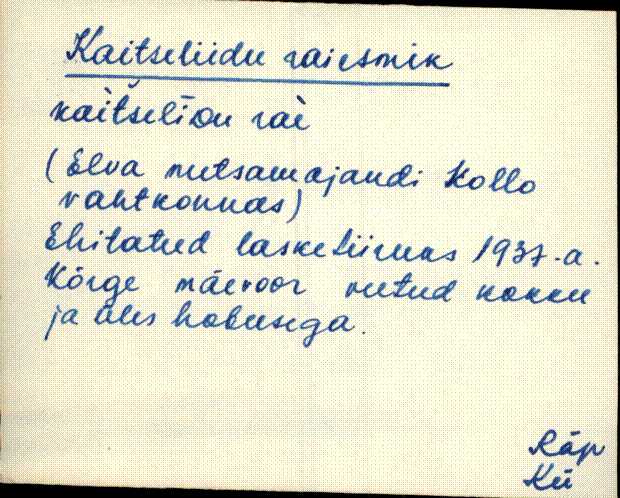 Kaitseliidu raiesmik
kaitšeliδu raì
(Elva metsamajandi Kollo
vahtkonnas)
Ehitatud lasketiiruks 1937. a.
Kõrge mäevoor veetud kokku
ja üles hobusega.
Räp
Kü